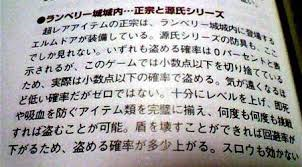 ●ランベリー城城内…正宗と源氏シリーズ
超レアアイテムの正宗は、ランベリー城城内に登場する
エルムドアが装備している。源氏シリーズの防具も、ここ
でしか見れない。いずれも盗める確率は0パーセントと表
示されるが、このゲームでは小数点以下を切り捨てている
ため、実際は小数点以下の確率で盗める。気が遠くなるほ
ど低い確率だがゼロではない。十分にレベルを上げ、即死
や吸血を防ぐアイテム類を完璧に揃え、何度も何度も挑戦
すれば盗むことが可能。盾を壊すことができれば回避率が
下がるため、盗める確率が多少上がる。スロウも効かない